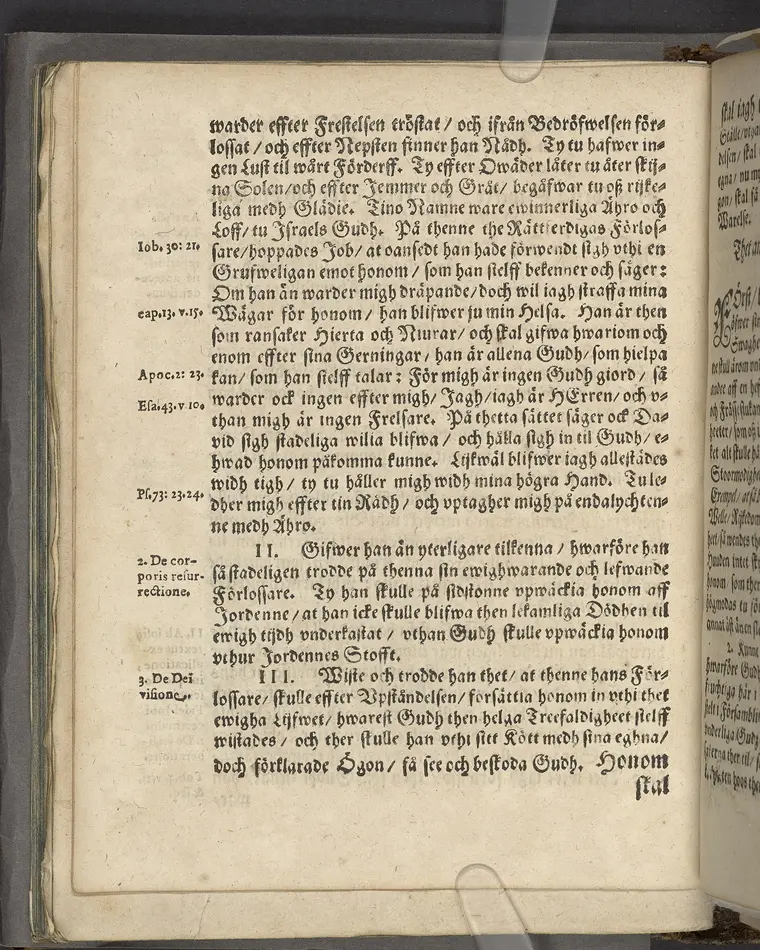 warder effter Frestelsen tröstat / och ifrån Bedröfwelsen för-
lossat / och effter Nepsten finner han Nådh. Ty tu hafwer in-
gen Lust til wårt Förderff. Ty effter Owäder låter tu åter skij-
na Solen / och effter Jemmer och Gråt / begåfwar tu oß rijke-
liga medh Glädie. Tino Namne ware ewinnerliga Ähro och
Loff / tu Israels Gudh. På thenne the Rättferdigas Förlos-
Iob. 30: 21. sare / hoppades Job / at oansedt han hade förwendt sigh vthi en
Grufweligan emot honom / som han sielff bekenner och säger:
Om han än warder migh dräpande / doch wil iagh straffa mina
cap. 13. v. 15. Wägar för honom / han blifwer ju min Helsa. Han är then
som ransaker Hierta och Niurar / och skal gifwa hwariom och
enom effter sina Gerningar / han är allena Gudh / som hielpa
Apoc. 2: 23. kan / som han sielff talar: För migh är ingen Gudh giord / så
Esa. 43. v 10. warder ock ingen effter migh / Jagh / iagh är HErren / och v-
than migh är ingen Frelsare. På thetta sättet säger ock Da-
vid sigh stadeliga wilia blifwa / och hålla sigh in til Gudh / e-
hwad honom påkomma kunne. Lijkwäl blifwer iagh allestädes
widh tigh / ty tu håller migh widh mina högra Hand. Tu le-
Ps. 73: 23. 24. dher migh effter tin Rådh / och vptagher migh på endalychten-
ne medh Ähro.
II. Gifwer han än yterligare tilkenna / hwarföre han
2. De cor-
poris resur-
rectione.
så stadeligen trodde på thenna sin ewighwarande och lefwande
Förlossare. Ty han skulle på sidstonne vpwäckia honom aff
Jordenne / at han icke skulle blifwa then lekamliga Dödhen til
ewigh tijdh vnderkastat / vthan Gudh skulle vpwäckia honom
vthur Jordennes Stofft.
3. De Dei
visione.
III. Wiste och trodde han thet / at thenne hans För-
lossare / skulle effter Vpståndelsen / försättia honom in vthi thet
ewigha Lijfwet / hwarest Gudh then helga Treefaldigheet sielff
wistades / och ther skulle han vthi sitt Kött medh sina eghna /
doch förklarade Ögon / få see och beskoda Gudh. Honom
skal